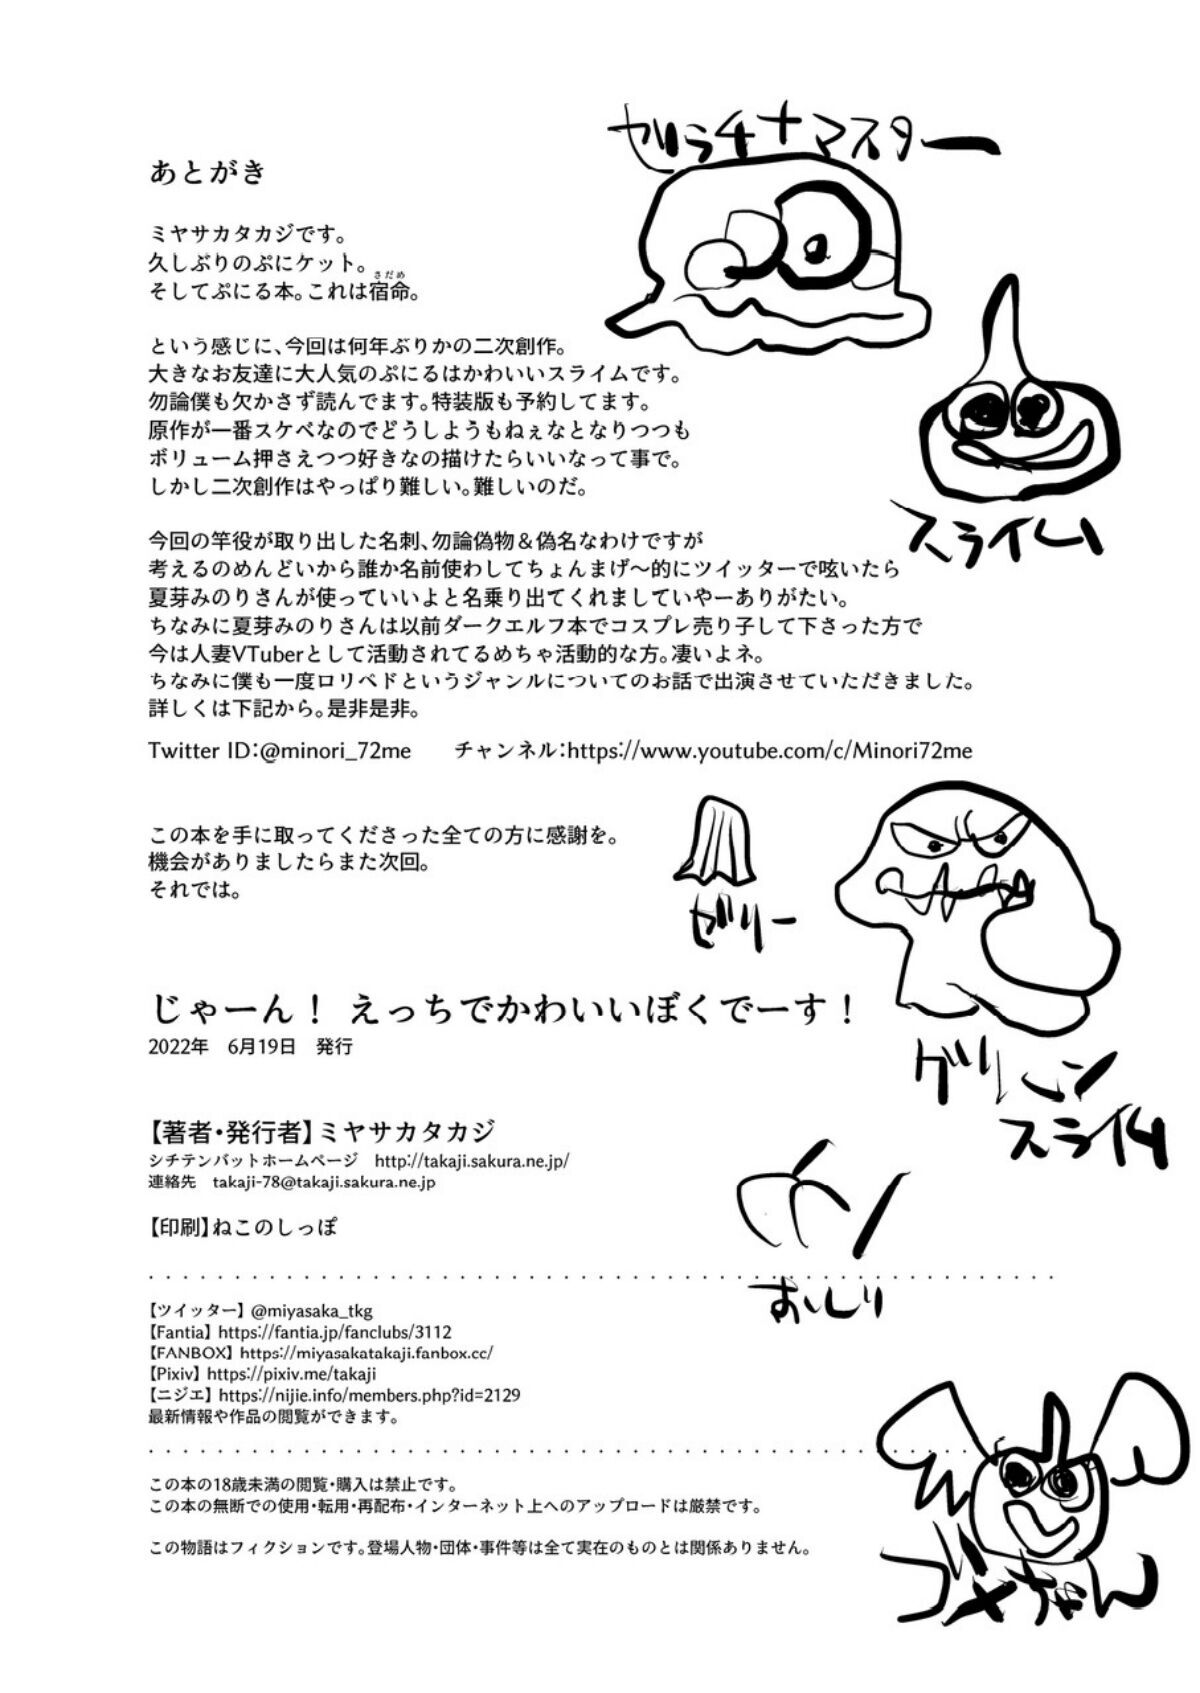 ゼリラチナマスター
あとがき
ミヤサカタカジです。
久しぶりのぷにケット。
さだめ
そしてぷにる本。これは宿命。
という感じに、今回は何年ぶりかの二次創作。
大きなお友達に大人気のぷにるはかわいいスライムです。
勿論僕も欠かさず読んでます。特装版も予約してます。
原作が一番スケベなのでどうしようもねぇなとなりつつも
ボリューム押さえつつ好きなの描けたらいいなって事で。
しかし二次創作はやっぱり難しい。難しいのだ。
スライム
今回の竿役が取り出した名刺、勿論偽物＆偽名なわけですが
考えるのめんどいから誰か名前使わしてちょんまげ〜的にツイッターで呟いたら
夏芽みのりさんが使っていいよと名乗り出てくれましていやーありがたい。
ちなみに夏芽みのりさんは以前ダークエルフ本でコスプレ売り子して下さった方で
今は人妻VTuberとして活動されてるめちゃ活動的な方。凄いよネ。
ちなみに僕も一度ロリベドというジャンルについてのお話で出演させていただきました。
詳しくは下記から。是非是非。
Twitter ID：@minori_72me　　チャンネル：https://www.youtube.com/c/Minori72me
この本を手に取ってくださった全ての方に感謝を。
機会がありましたらまた次回。
それでは。
ゼリー
じゃーん！ えっちでかわいいぼくでーす！
2022年　6月19日　発行
グリーン
スライム
【著者・発行者】ミヤサカタカジ
シチテンバットホームページ　http://takaji.sakura.ne.jp/
連絡先　takaji-78@takaji.sakura.ne.jp
【印刷】ねこのしっぽ
おいしい
【ツイッター】@miyasaka_tkg
【Fantia】https://fantia.jp/fanclubs/3112
【FANBOX】https://miyasakatakaji.fanbox.cc/
【Pixiv】https://pixiv.me/takaji
【ニジエ】https://nijie.info/members.php?id=2129
最新情報や作品の閲覧ができます。
この本の18歳未満の閲覧・購入は禁止です。
この本の無断での使用・転用・再配布・インターネット上へのアップロードは厳禁です。
この物語はフィクションです。登場人物・団体・事件等は全て実在のものとは関係ありません。
ゴメちゃん